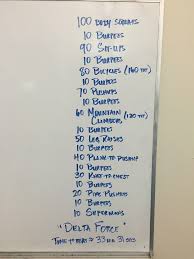 100 BODY SQUATS
10 BURPEES
90 SIT-UPS
10 BURPEES
80 BICYCLES (160 TOT)
10 BURPEES
70 PUSHUPS
10 BURPEES
60 MOUNTAIN
CLIMBERS (120 TOT)
10 BURPEES
50 LEG RAISES
10 BURPEES
40 PLANK TO PUSHUP
10 BURPEES
30 KNEE TO CHEST
10 BURPEES
20 PIKE PUSHUPS
10 BURPEES
10 SUPERMANS
"DELTA FORCE"
TIME TO BEAT = 33 MIN 31 SECS